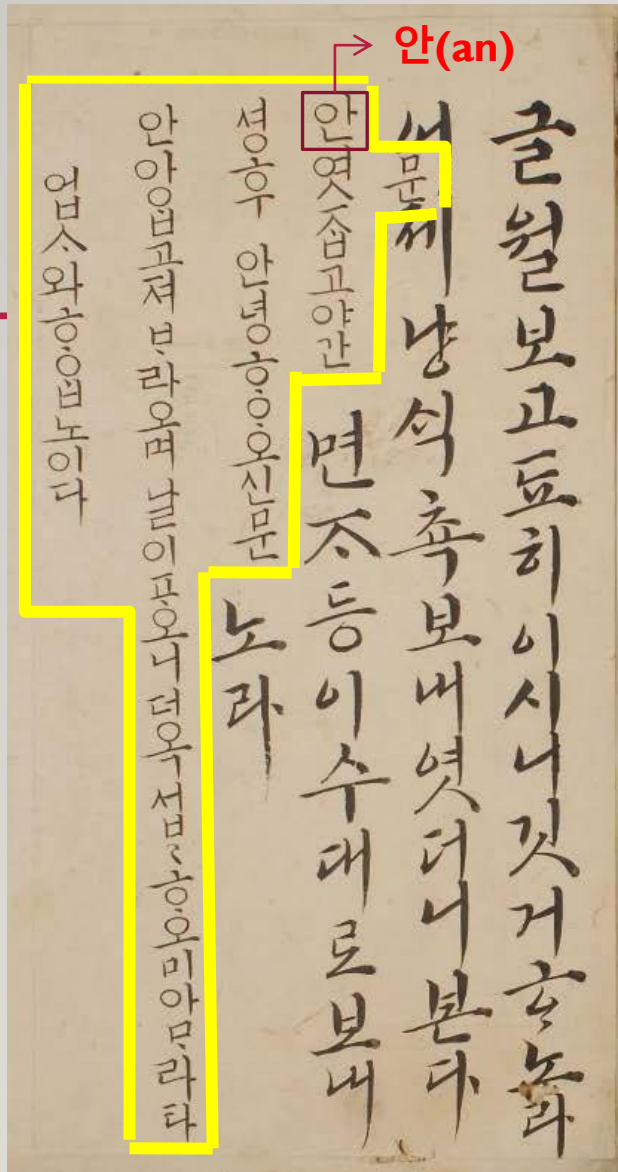 안(an)
글월보고됴히이시니깃거ᄒᆞ노라
어제냥ᄉᆡᆨ쵹보내엿더니본다
면ᄌᆞ등이수대로보내
노라
문
안엿ᄌᆞᆸ고야간
셩후 안녕ᄒᆞᄋᆞ오신문
안아ᄋᆞᆸ고져ᄇᆞ라오며 날이프ᄋᆞ오니더옥섭〻ᄒᆞᄋᆞ오미아ᄆᆞ라타
업ᄉᆞ와ᄒᆞᄋᆞᆸ노이다